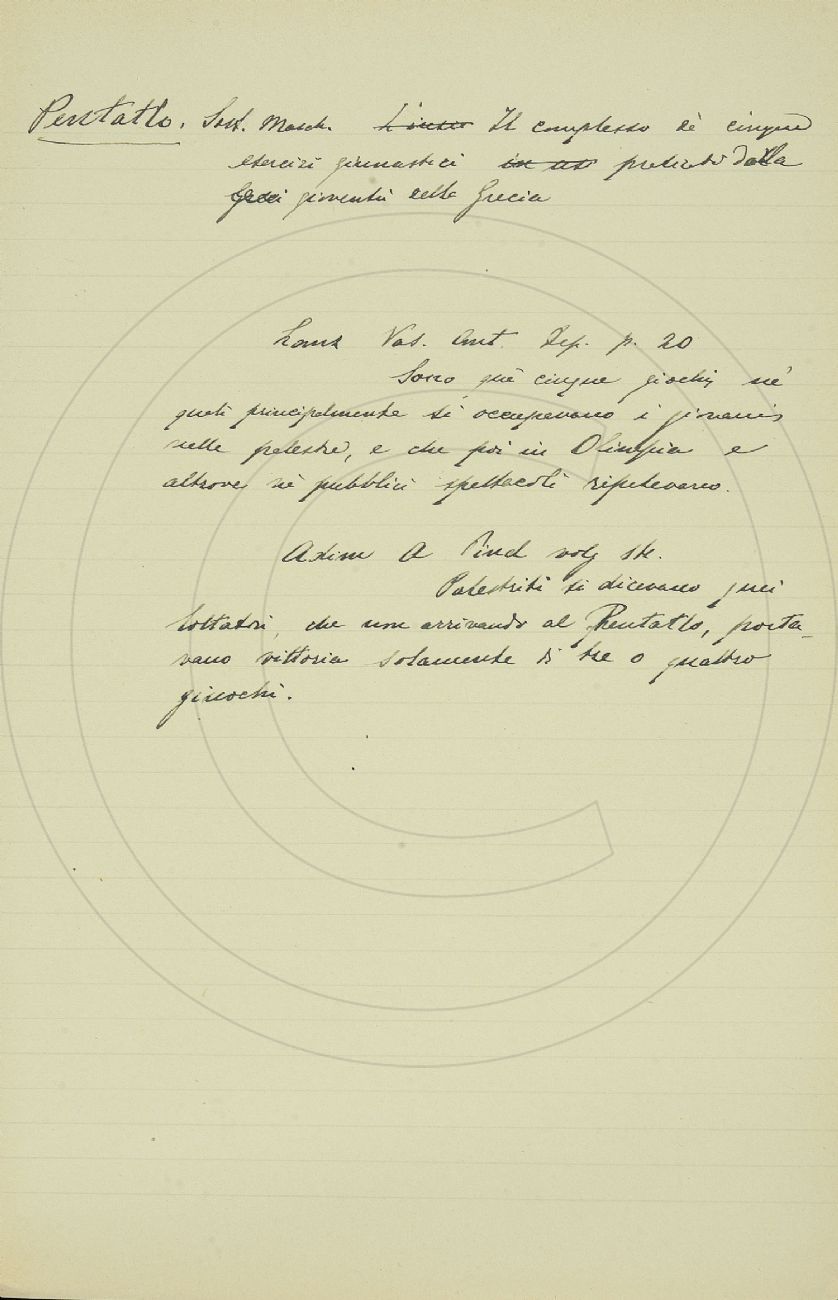 Pentatlo. Sost. Masch. L'insie Il complesso de' cinque
esercizi ginnastici in us praticati dalla
Greci gioventù della Grecia
Lanz Vas. Ant. Dip. p. 20
Sono que' cinque giochi, ne'
quali principalmente si occupavano i giovani
nelle palestre, e che poi in Olimpia e
altrove ne' pubblici spettacoli ripetevano.
Adim A Pind volg
Palestriti si dicevano quei
lottatori, che non arrivando al Pentatlo, porta-
vano vittoria solamente di tre o quattro
giuochi.